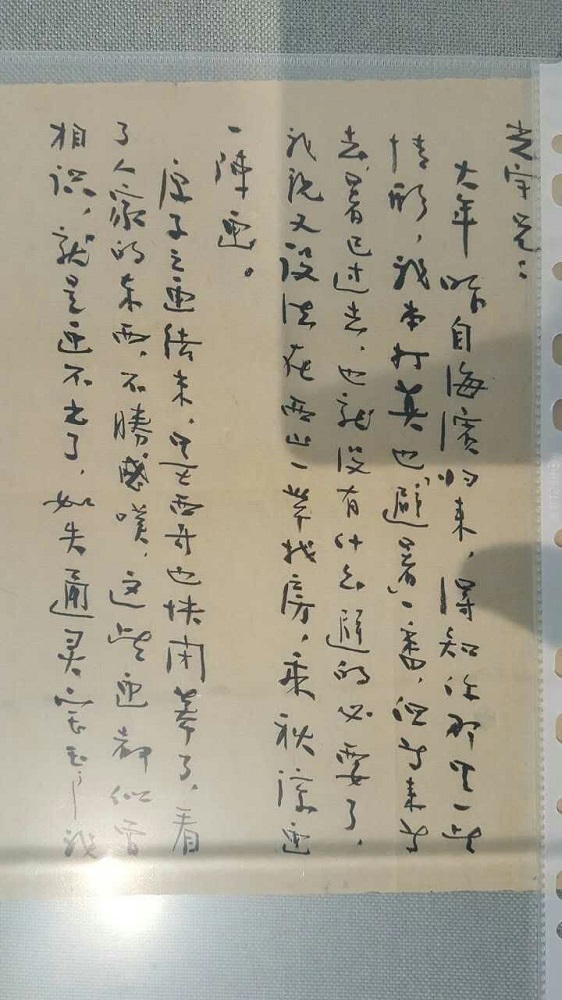 光宇兄：
大年昨自海滨归来，得知你那里一些
情形，我本打算也避暑一番，但弄来弄
去，暑已过去，也就没有什么避的必要了，
我现又设法在西山一带找房，乘秋凉画
一阵画。
子之画结束，墨西哥也快闭幕了，看
了人家的东西，不胜感叹，这些画都似曾
相识，就是画不出了，如失通灵宝玉，我